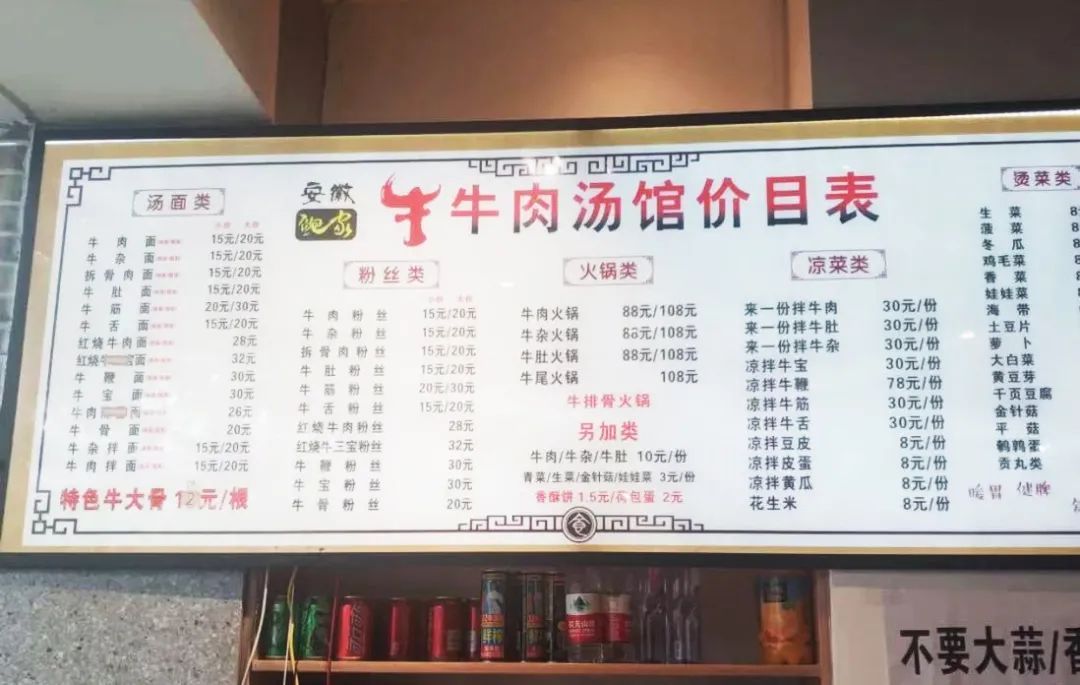 安徽
牛肉汤馆价目表
汤面类
小份 大份
牛肉面 15元/20元
牛杂面 15元/20元
拆骨肉面 15元/20元
牛肚面 15元/20元
牛筋面 20元/30元
牛舌面 15元/20元
红烧牛肉面 28元
红烧牛宝面 32元
牛鞭面 30元
牛宝面 30元
牛肉 面 26元
牛骨面 20元
牛杂拌面 15元/20元
牛肉拌面 15元/20元
特色牛大骨 12元/根
粉丝类
小份 大份
牛肉粉丝 15元/20元
牛杂粉丝 15元/20元
拆骨肉粉丝 15元/20元
牛肚粉丝 15元/20元
牛筋粉丝 20元/30元
牛舌粉丝 15元/20元
红烧牛肉粉丝 28元
红烧牛三宝粉丝 32元
牛鞭粉丝 30元
牛宝粉丝 30元
牛骨粉丝 20元
火锅类
牛肉火锅 88元/108元
牛杂火锅 88元/108元
牛肚火锅 88元/108元
牛尾火锅 108元
牛排骨火锅
另加类
牛肉/牛杂/牛肚 10元/份
青菜/生菜/金针菇/娃娃菜 3元/份
香酥饼 1.5元/荷包蛋 2元
凉菜类
来一份拌牛肉 30元/份
来一份拌牛肚 30元/份
来一份拌牛杂 30元/份
凉拌牛宝 30元/份
凉拌牛鞭 78元/份
凉拌牛筋 30元/份
凉拌牛舌 30元/份
凉拌豆皮 8元/份
凉拌皮蛋 8元/份
凉拌黄瓜 8元/份
花生米 8元/份
烫菜类
生菜 8
菠菜 8
冬瓜 8
鸡毛菜 8
香菜
娃娃菜
海带
土豆片
萝卜
大白菜
黄豆芽
千页豆腐
金针菇
平菇
鹌鹑蛋
贡丸类
暖胃 健脾
食
不要大蒜/香